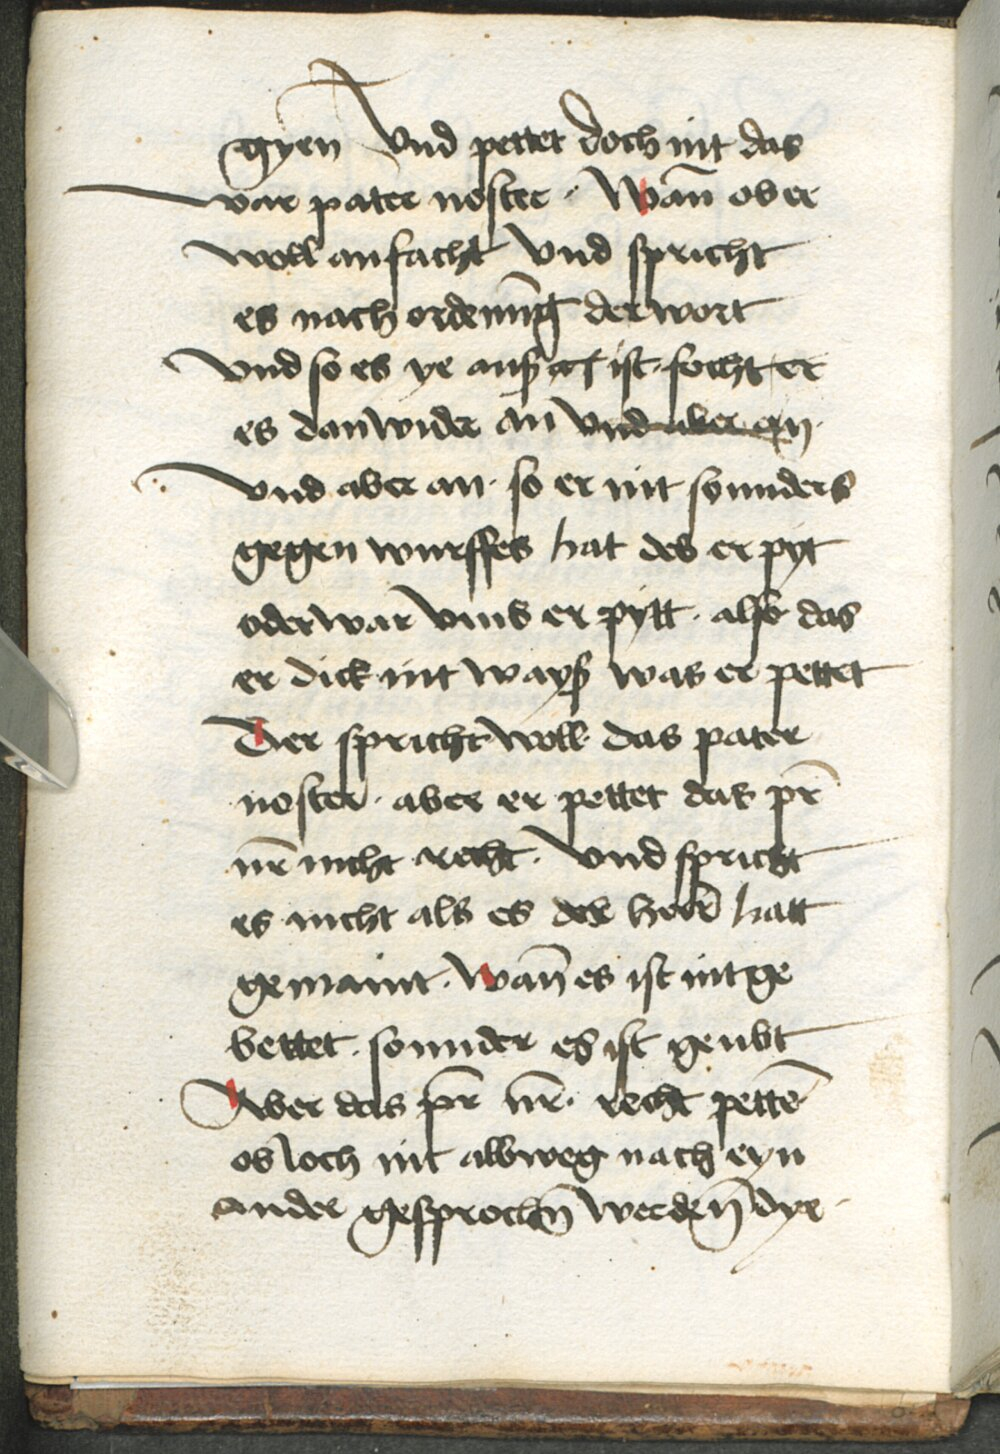 gyen Vnd pettet doch nit das
war pater noster · Wan̄ ob er
woll anfacht Vnd spricht
es nach ordenūg der wort
Vnd so es ye auß ist · focht er
es dan wider an vnd aber an
Vnd aber an · so er nit sonnders
gegen wurffes hat des er pyt
oder war vmb er pytt · also das
er dick nit wayß was er pettet
Der spricht woll das pater
noster · aber er pettet das pr̄
nr̄ nicht recht · Vnd spricht
es nicht als es der herr̄ hatt
gemaint · Wan̄ es ist nit ge
bettet · sonnder es ist geubt
Wer das pr̄ nr̄ · recht pettē
ob ioch nit albweg nach eyn
ander gesprochn̄ werden̄ dye